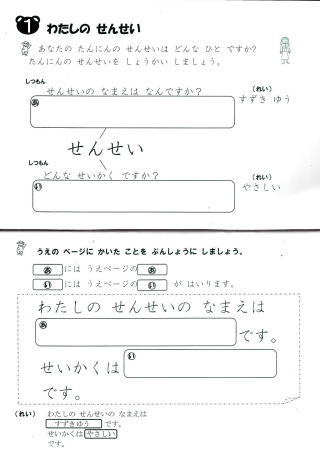 1 わたしの せんせい
あなたの たんにんの せんせいは どんな ひと ですか?
たんにんの せんせいを しょうかい しましょう。
しつもん
せんせいの なまえは なんですか?
(れい)
すずき ゆう
あ
せんせい
しつもん
どんな せいかく ですか?
(れい)
やさしい
い
うえの ページに かいた ことを ぶんしょうに しましょう。
あ には うえページの あ
い には うえページの い が はいります。
わたしの せんせいの なまえは
あ です。
せいかくは い
です。
(れい) わたしの せんせいの なまえは
すずきゆう です。
せいかくは やさしい
です。